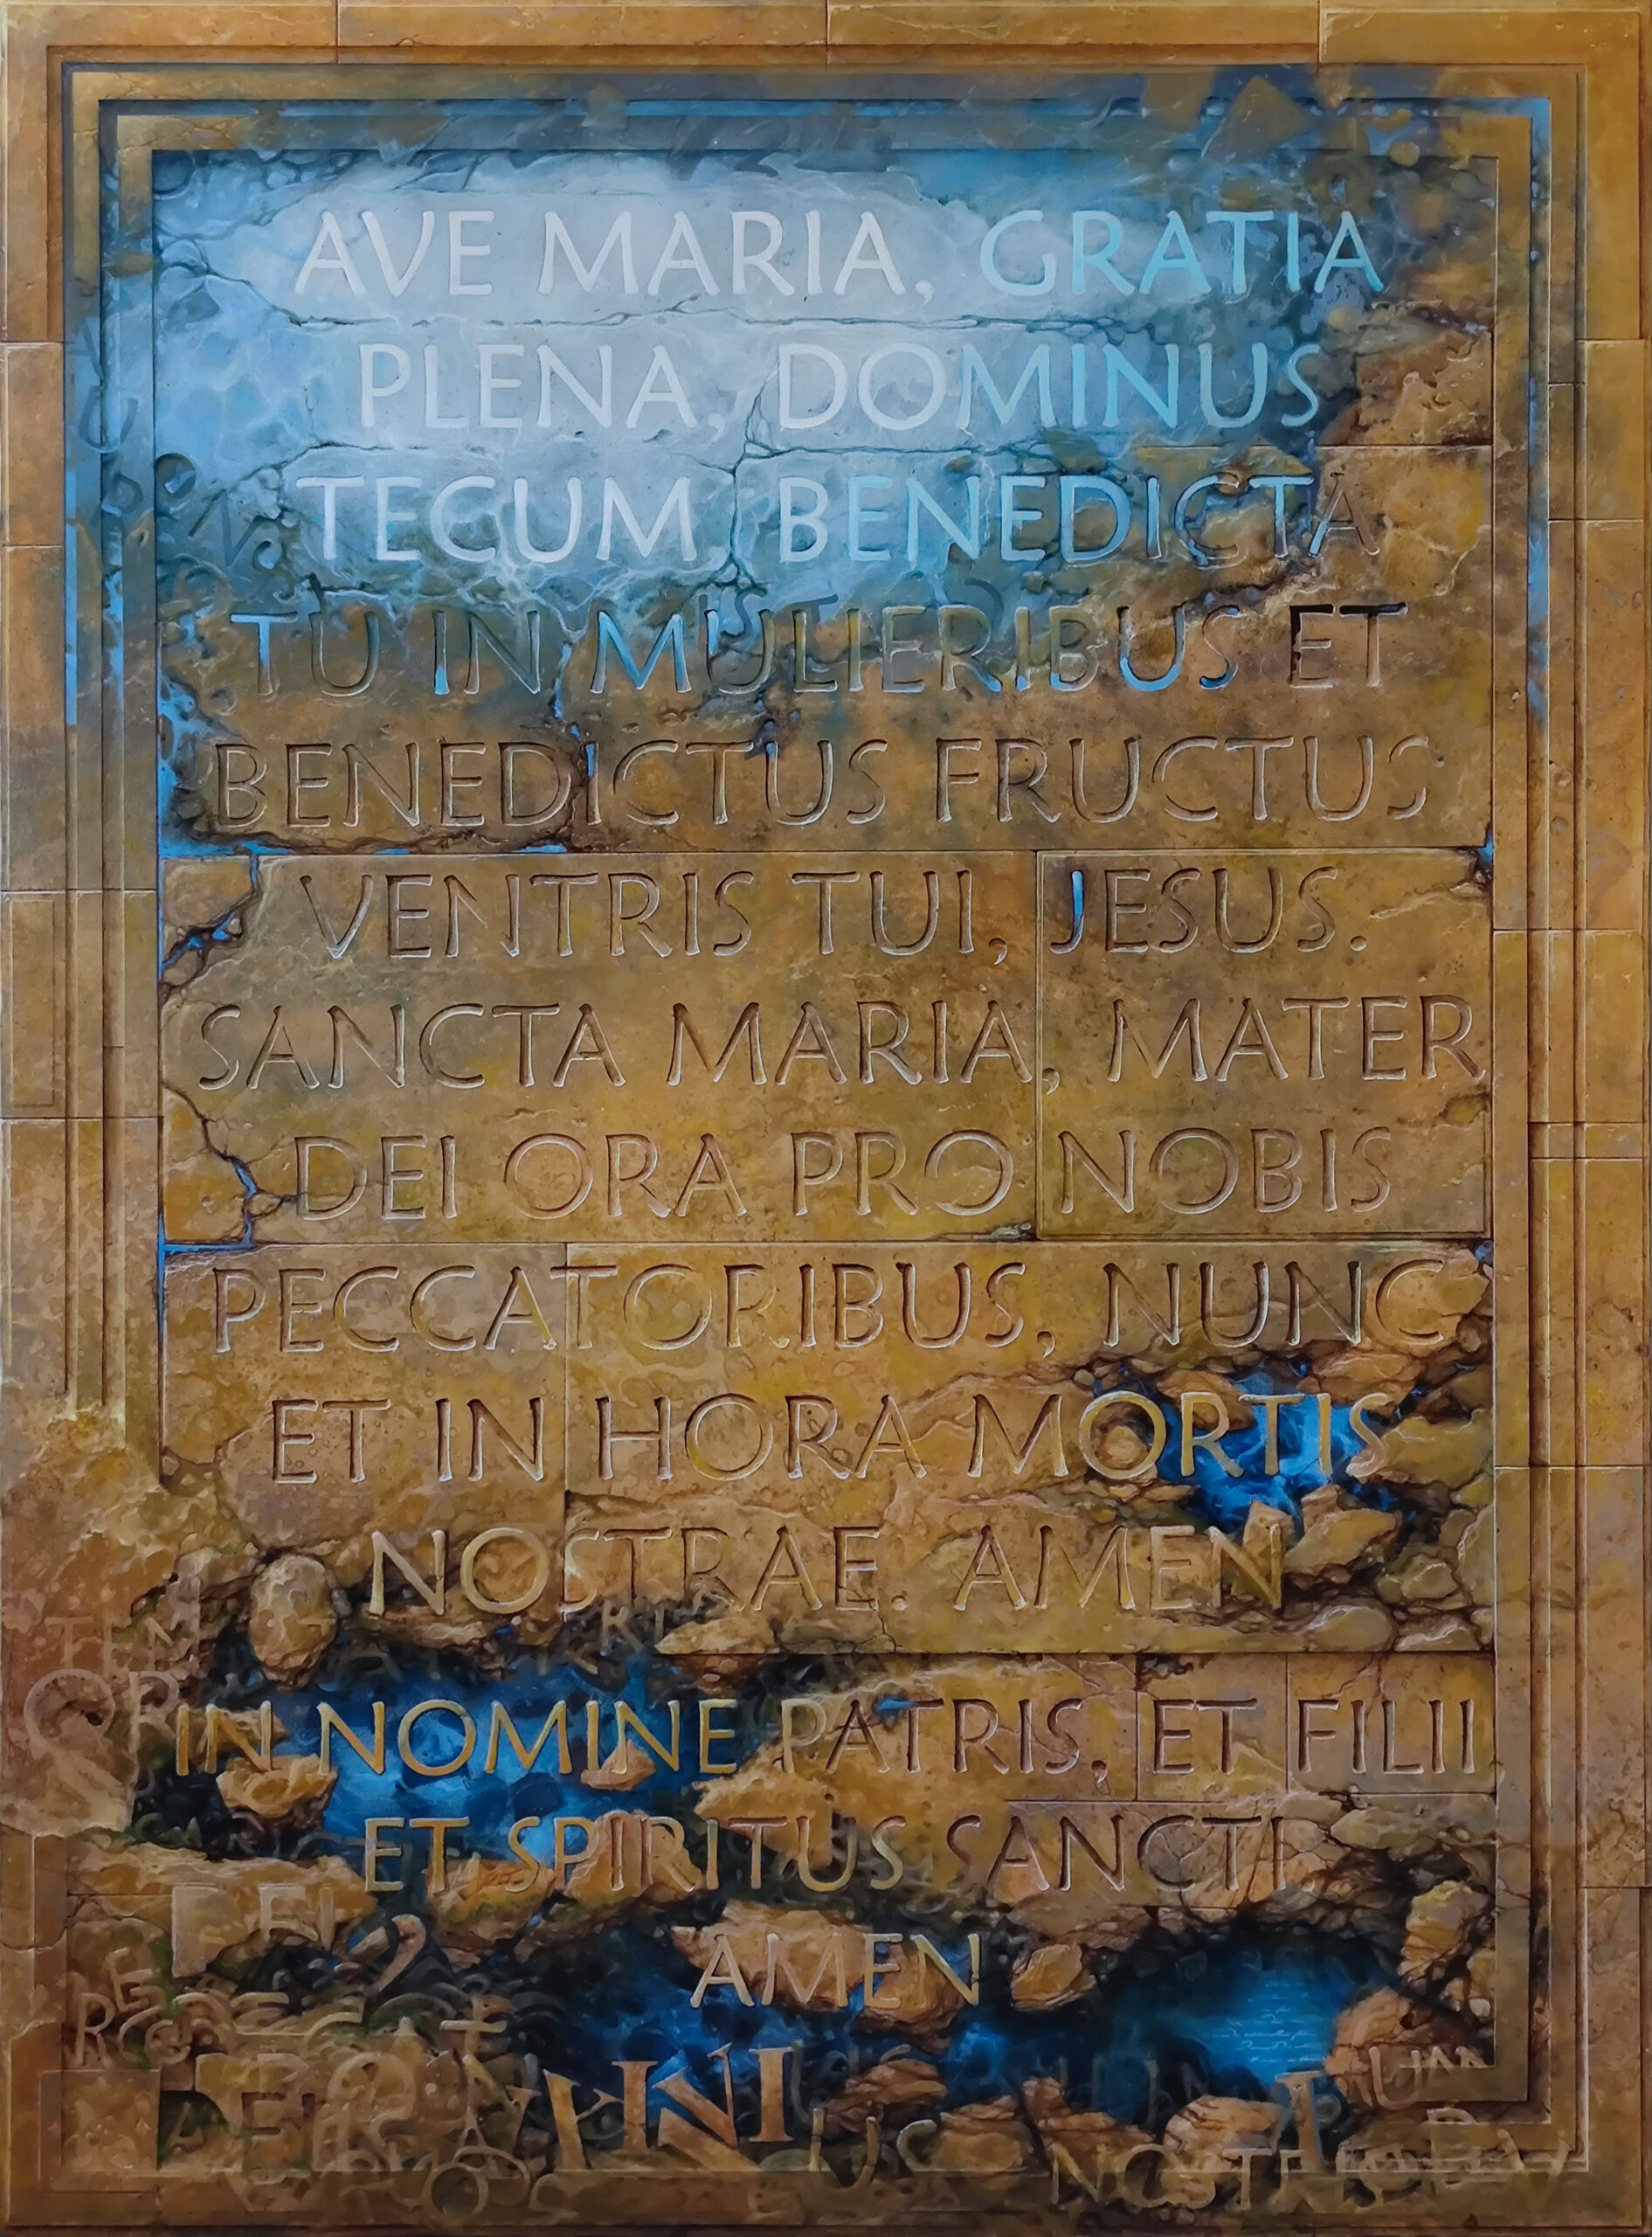 AVE MARIA, GRATIA
PLENA, DOMINUS
TECUM, BENEDICTA
TU IN MULIERIBUS ET
BENEDICTUS FRUCTUS
VENTRIS TUI, JESUS.
SANCTA MARIA, MATER
DEI ORA PRO NOBIS
PECCATORIBUS, NUNC
ET IN HORA MORTIS
NOSTRAE. AMEN
IN NOMINE PATRIS, ET FILII,
ET SPIRITUS SANCTI.
AMEN
DEI